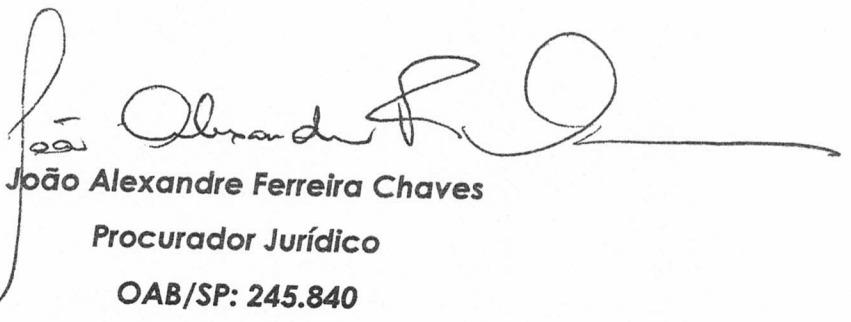 João Alexandre
João Alexandre Ferreira Chaves
Procurador Jurídico
OAB/SP: 245.840